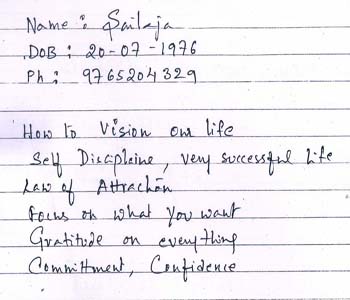 Name : Sailaja
DOB : 20-07-1976
Ph : 9765204329
How to Vision our life
Self Discipleine, very successful life
Law of Attraction
Focus on what you want
Gratitude on everything
Committment, Confidence